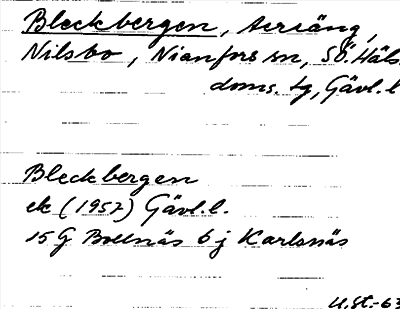 Bleckbergen, terräng,
Nilsbo, Nianfors sn, SÖ. Häls.
doms. tg, Gävl. l
Bleckbergen
ek (1957) Gävl. l.
15 G Bollnäs 6 j Karlsnäs
U.St.-63